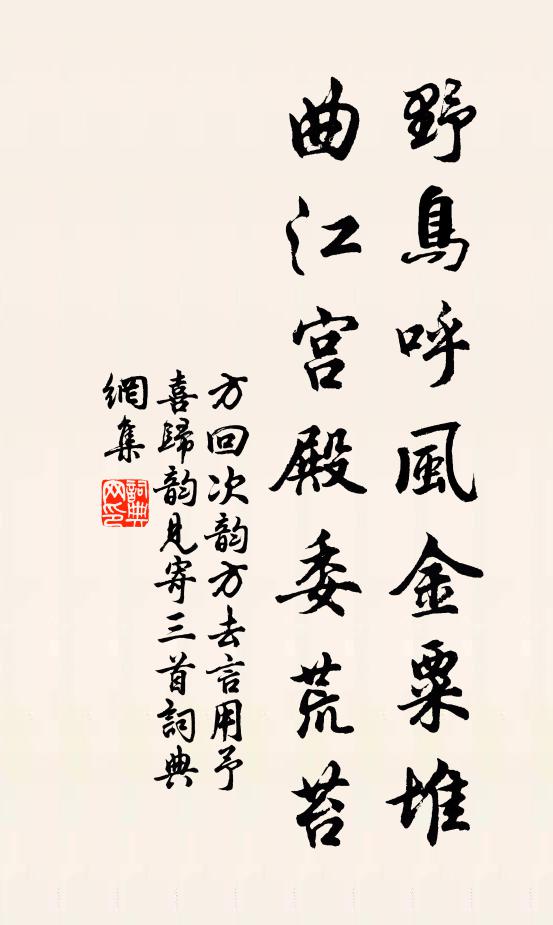 野鳥呼風金粟堆
曲江宫殿委荒苔
方回次韵方去言用予
喜歸韵見寄三首詞典
網集
詞典網印